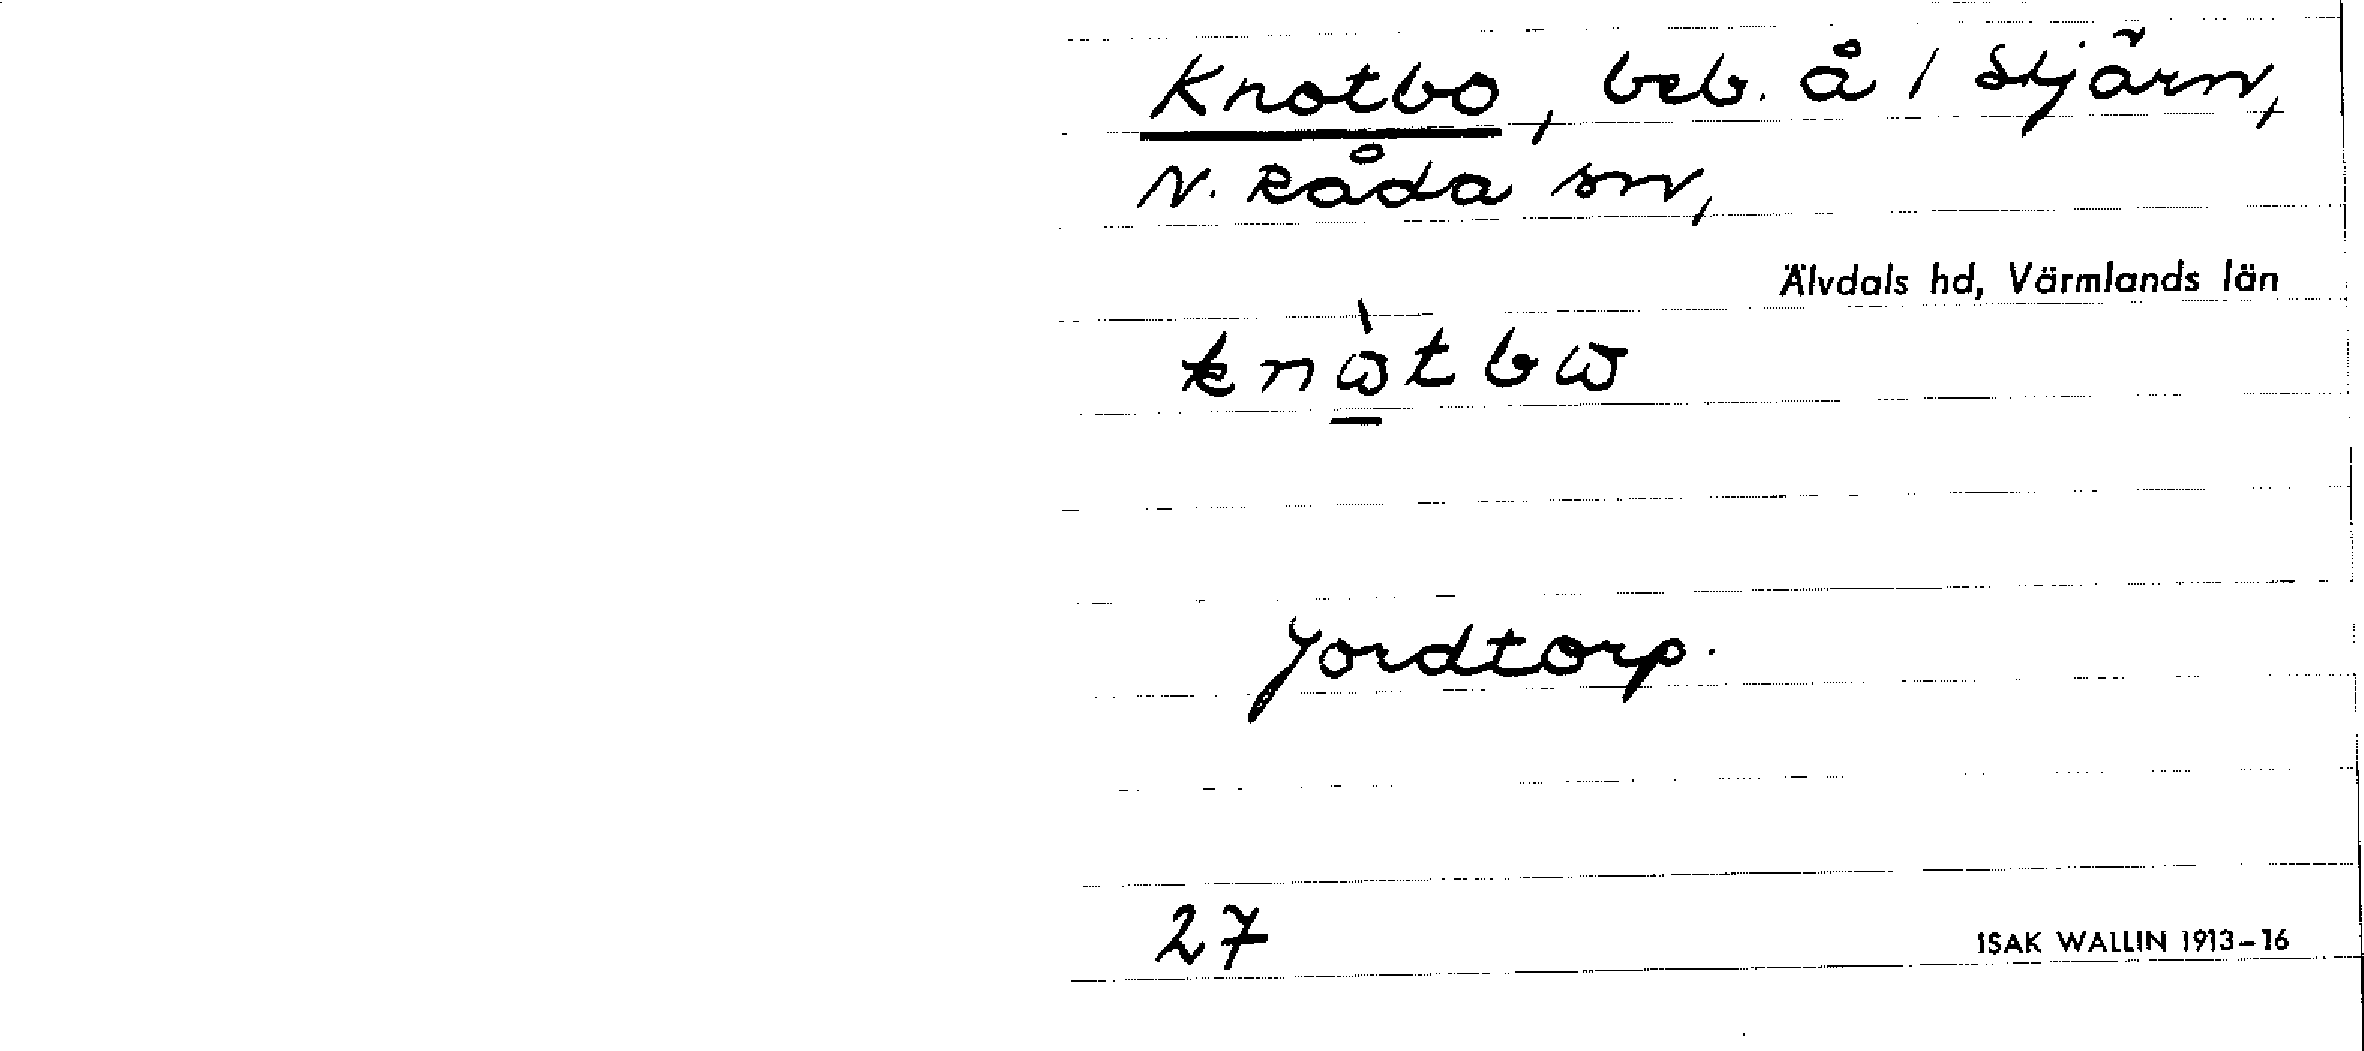 Knotbo, beb. å 1 Stjärn,
N. Råda sn,
Älvdals hd, Värmlands län
knὼ̲tbω
Jordtorp.
27
ISAK WALLIN 1913–16